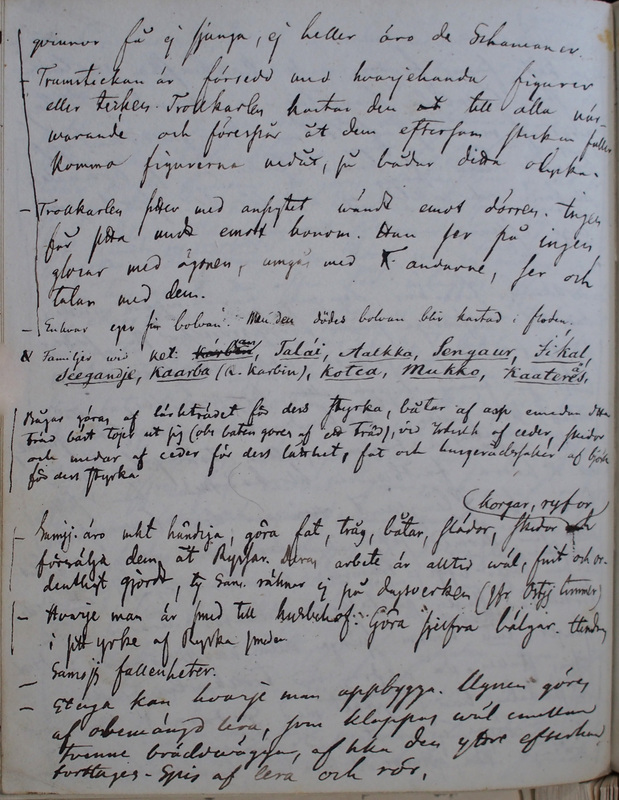 qvinnor få ej sjunga, ej heller äro de Schamaner.
– Trumstickan är försedd med hvarjehanda figurer
eller tecken. Trollkarlen kastar den till alla när-
warande och förespår åt dem eftersom stickan faller
Komma figurerna nedåt, så bådar detta olycka.
– Trollkarlen sitter med ansigtet wändt emot dörren. Ingen
får sitta midt emot honom. Han ser på ingen
med ögonen, umgås med andarne, ser och
talar med dem.
– Enhvar eger sin bolvan. Men den dödes bolvan blir kastad i floden.
N Familjer wid Ket: Kárbin, Talái, Aalkka, Sengaur, Sikal,
Seegandje, Kaarba (R. Karbin), Kotea, Mukko, Kaaterés,
Bågar göras af lärkträdet för dess styrka, båtar af asp emedan detta
träd bäst töjer ut sig (obs. båten göres af ett träd), vid af ceder, skidor
och medar af ceder för dess lätthet, fat och husgerådssaker af björk
för dess styrka
Korgar, ryssor,
– Samoj. äro mkt händiga, göra fat, tråg, båtar, slädor, skidor och
försälja dem åt Ryssar. Deras arbete är alltid wäl, fint och or-
dentligt gjordt, ty Sam. räknar ej på dagsverken (jfr Ostj. timmer)
– Hvarje man är smed till husbehof. Göra sjelfva bälgar.
i sitt yrke af Ryska smeden
– Samojs fallenheter.
– Stuga kan hvarje man uppbygga. Ugnen göres
af obemängd lera, som klappas wäl emellan
twenne brädwäggar, af hka den yttre efteråt
borttages – Spis af lera och rör.